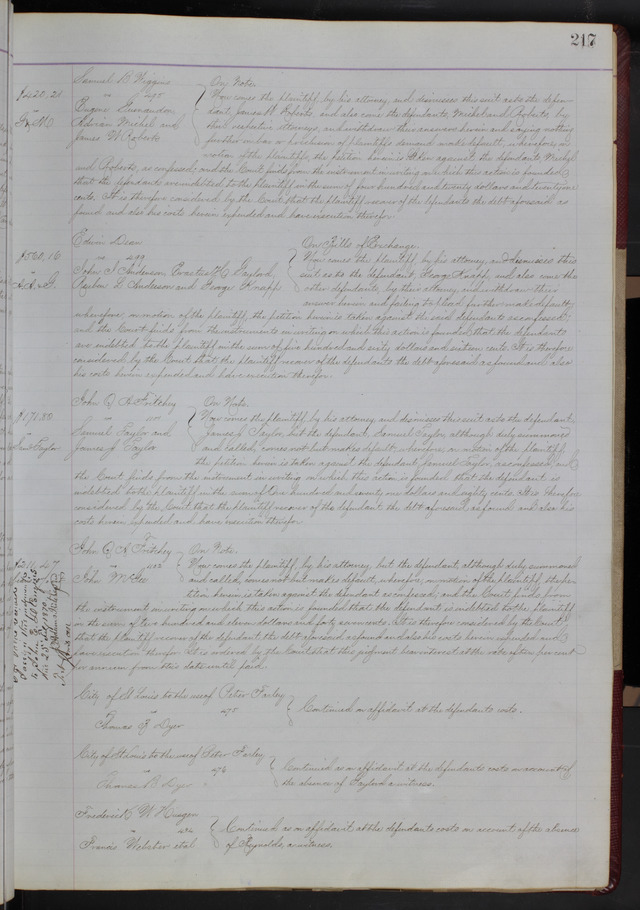 217
Samuel B. Wiggins
vs
Eugene
Adrian Michel and
James W Roberts
$420.21
On Note.
Now comes the plaintiff, by his attorney, and dismisses this suit as to the defen-
dant, James W. Roberts, and also come the defendants, Michel and Roberts, by
their respective attorneys, and withdraw their answers herein and saying nothing
further in bar or preclusion of plaintiff's demand make default, wherefore, on
motion of the plaintiff, the petition herein is taken against the defendants Michel
and Roberts, as confessed; and the Court finds from the instrument in writing on which this action is founded,
that the defendants are indebted to the plaintiff in the sum of four hundred and twenty dollars and twenty one
cents. It is therefore considered by the Court that the plaintiff recover of the defendants the debt aforesaid as
found and also his costs herein expended and have execution therefor.
Edwin Dean
vs 499
John J. Anderson, H. Gaylord,
Reuben L. Anderson and George Knapp
$560.16
On Bills of Exchange.
Now comes the plaintiff, by his attorney, and dismisses this
suit as to the defendant, George Knapp, and also come the
other defendants, by their attorney, and withdraw their
answer herein and failing to plead further make default;
wherefore, on motion of the plaintiff, the petition herein is taken against the said defendants as confessed;
and the Court finds from the instruments in writing on which this action is founded, that the defendants
are indebted to the plaintiff in the sum of five hundred and sixty dollars and sixteen cents. It is therefore
considered by the Court that the plaintiff recover of the defendants the debt aforesaid as found and also
his costs herein expended and have execution therefor.
John Q. A. Fritchey
vs
Samuel Taylor and
James J Taylor
$171.80
Saml Taylor
On Note.
Now comes the plaintiff by his attorney and dismisses this suit as to the defendant,
James J. Taylor, but the defendant, Samuel Taylor, although duly summoned
and called, comes not but makes default; wherefore, on motion of the plaintiff
the petition herein is taken against the defendant, Samuel Taylor, as confessed; and
the Court finds from the instrument in writing on which this action is founded, that the defendant is
indebted to the plaintiff in the sum of One hundred and seventy one dollars and eighty cents. It is therefore
considered by the Court that the plaintiff recover of the defendant the debt aforesaid as found and also his
costs herein expended and have execution therefor.
John Q. A Fritchey
vs
John McGee
$211.47
On Note.
Now comes the plaintiff, by his attorney, but the defendant, although duly summoned
and called, comes not but makes default; wherefore, on motion of the plaintiff, the peti-
tion herein is taken against the defendant as confessed; and the Court finds from
the instrument in writing on which this action is founded that the defendant is indebted to the plaintiff
in the sum of two hundred and eleven dollars and forty seven cents. It is therefore considered by the Court
that the plaintiff recover of the defendant the debt aforesaid as found and also his costs herein expended and
have execution therefor. It is ordered by the Court that this judgment bear interest at the rate of ten per cent
per annum from this date until paid.
City of St Louis to the use of Peter Farley
vs 475
Thomas B Dyer
Continued on affidavit at the defendants costs.
City of St Louis to the use of Peter Farley
vs 476
Thomas B. Dyer
Continued as on affidavit at the defendants costs on account of
the absence of Gaylord a witness.
Frederick W Kruger
vs
Francis Webster et al
Continued as on affidavit at the defendants costs on account of the absence
of Reynolds, a witness.